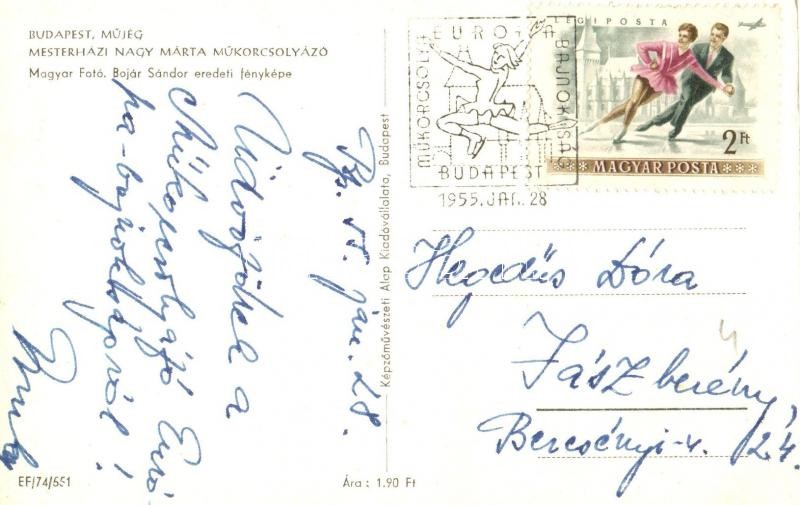 BUDAPEST, MŰJÉG
MESTERHÁZI NAGY MÁRTA MŰKORCSOLYÁZÓ
Magyar Fotó, Bojár Sándor eredeti fényképe
Bp. 55. jan. 28.
Üdvözöllek a
Műkorcsolyázó Euró-
pa-bajnokságról!
EF/74/551
Ára: 1.90 Ft
Képzőművészeti Alap Kiadóvállalata, Budapest
MŰKORCSOLYA
EUROPA
BAJNOKSÁG
BUDAPEST
1955. JAN. 28
LÉGIPOSTA
2 Ft
MAGYAR POSTA
Hegedüs Dóra
Jászberény,
Bercsényi-u. 24.